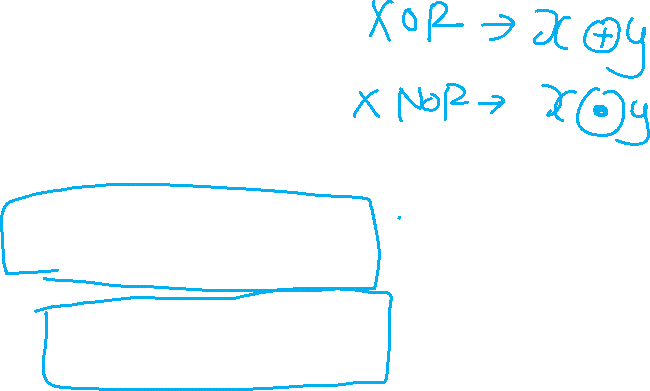 XOR → x ⊕ y
XNOR → x ⊙ y